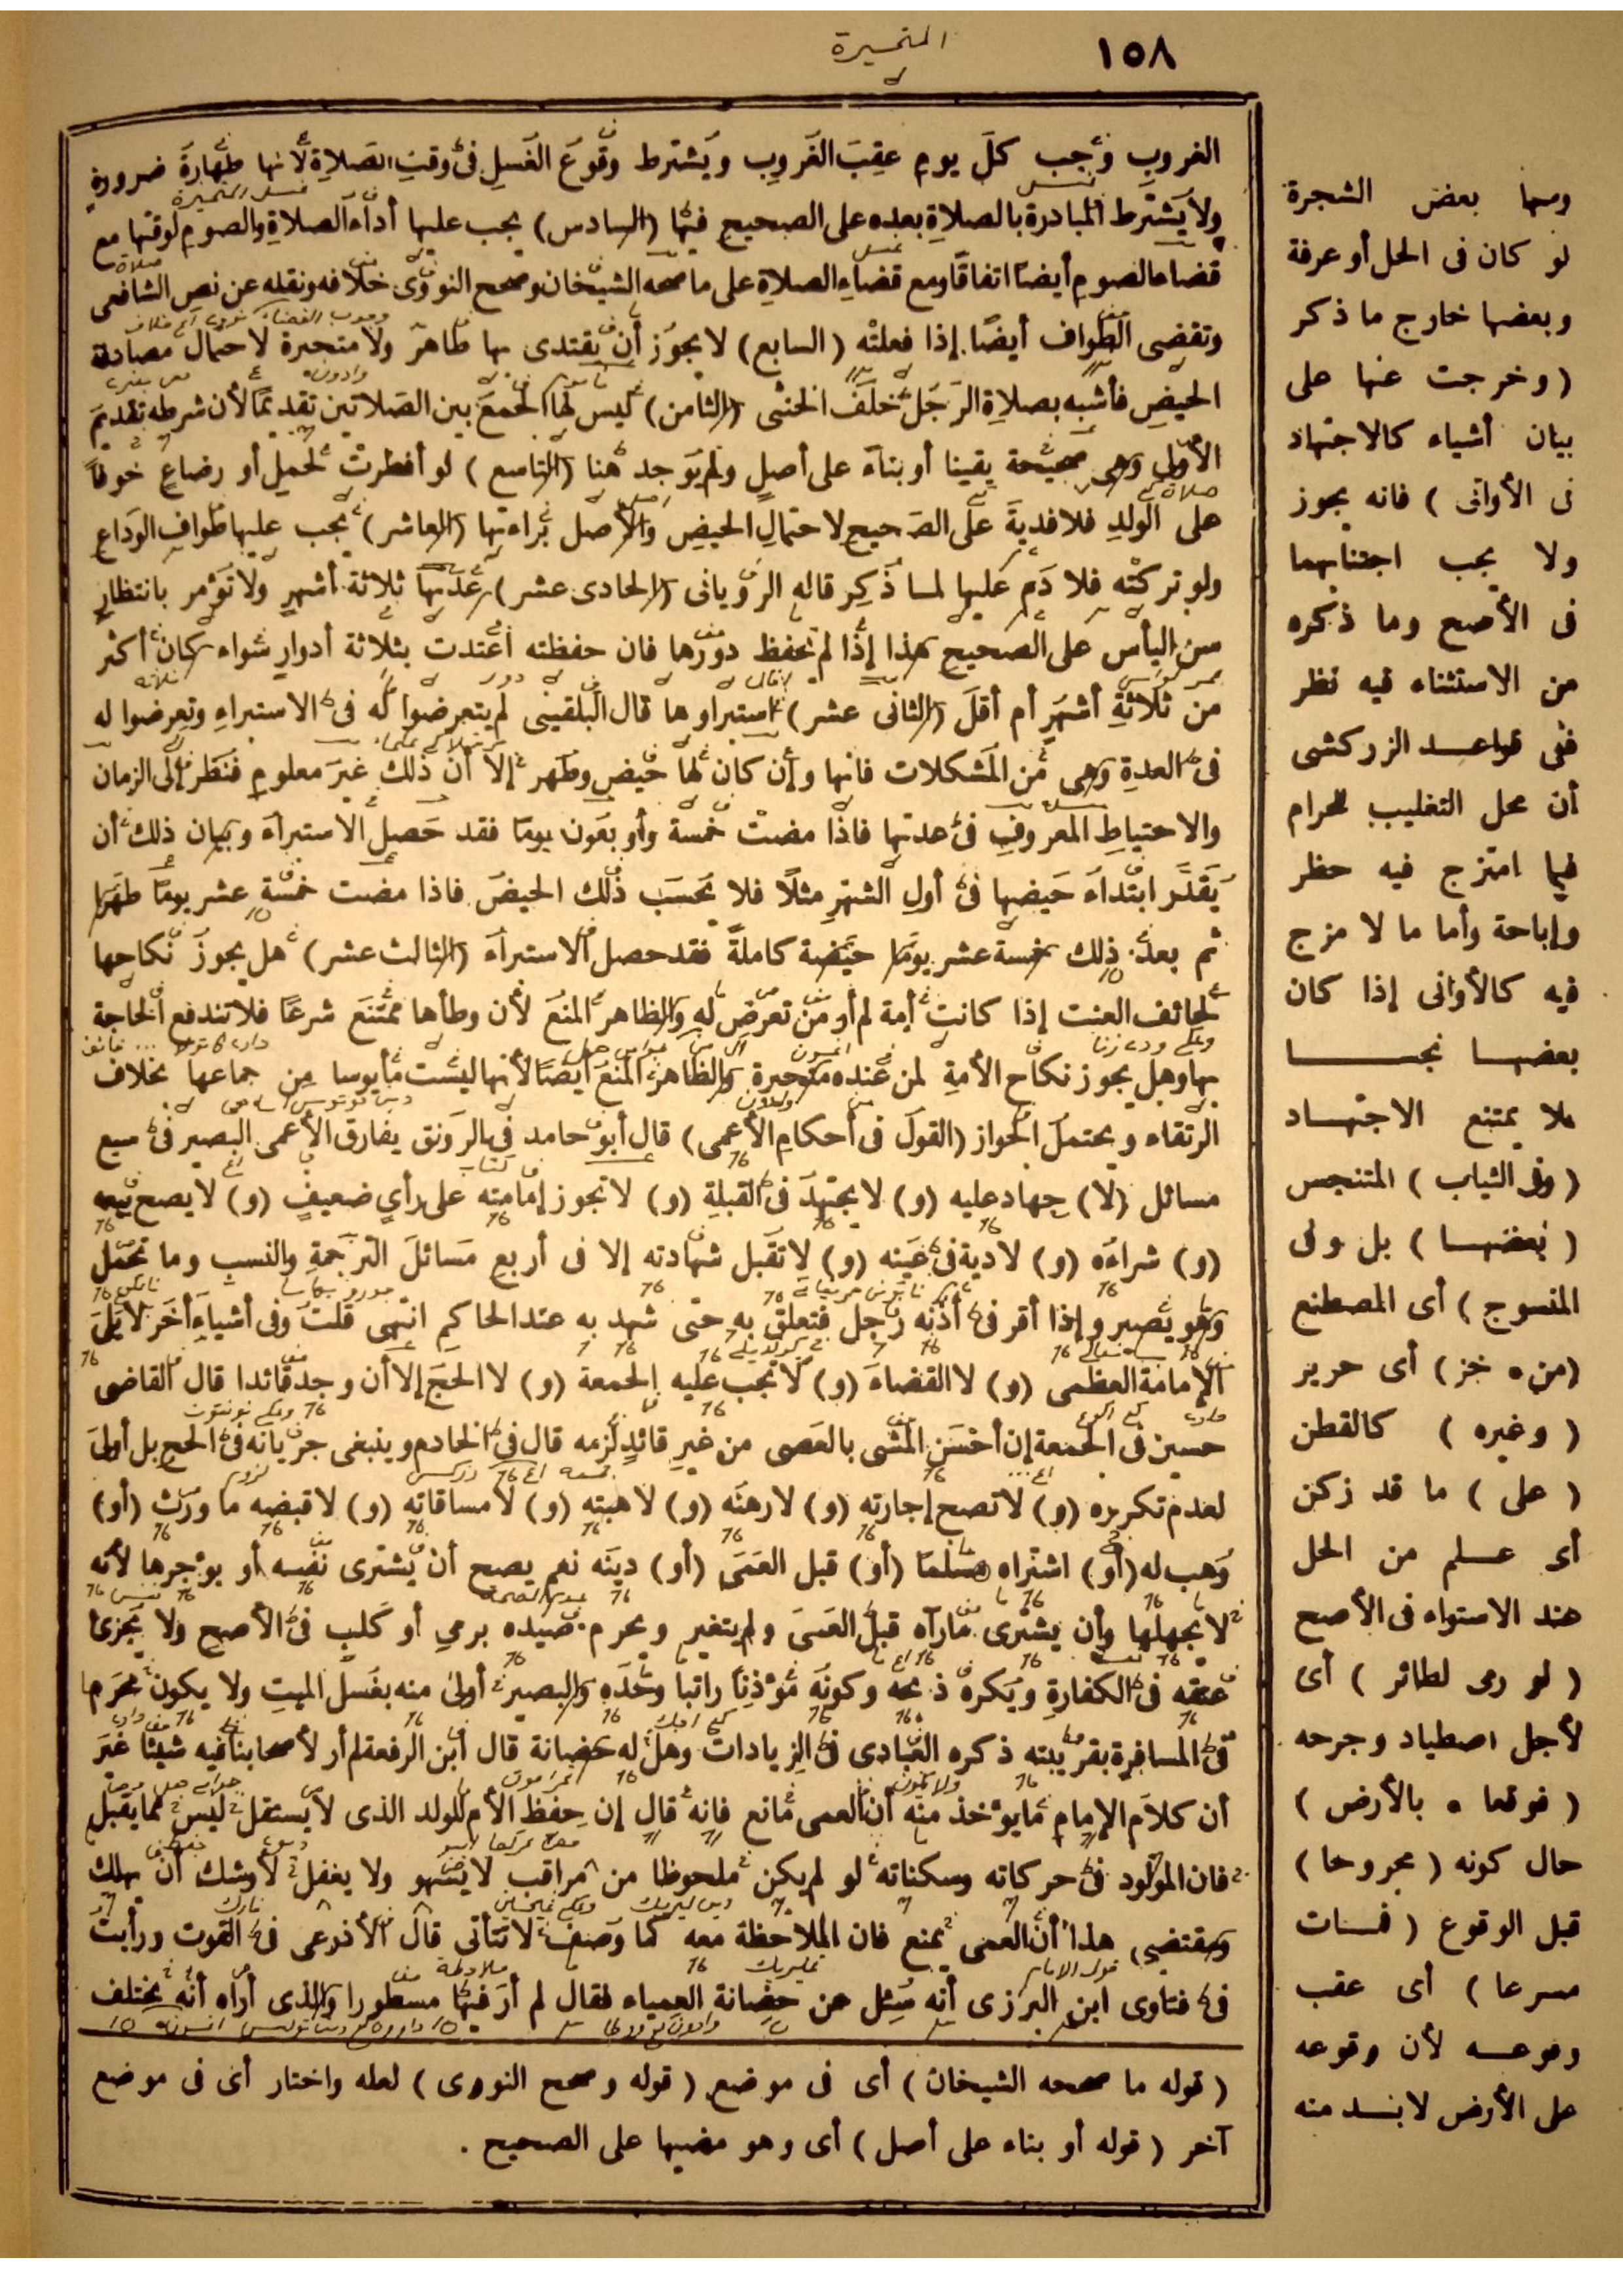 ١٥٨
المتحيرة
الغروب وتجب كل يوم عقب الغروب ويشترط وقوع الغسل في وقت الصلاة لأنها طهارة ضرورة
ولا يشترط المبادرة بالصلاة بعده على الصحيح فيها (السادس) يجب عليها أداء الصلاة والصوم لوقتها مع
قضاء الصوم أيضا اتفاقا ومع قضاء الصلاة على ما صححه الشيخان وصحح النووى خلافه ونقله عن نص الشافعى
وتقضى الطواف أيضا إذا فعلته (السابع) لا يجوز أن يقتدى بها طاهر ولا متحيرة لاحتمال مصادفة
الحيض فأشبه بصلاة الرجل خلف الخنثى (الثامن) ليس لها الجمع بين الصلاتين تقديما لأن شرطه تقديم
الأولى وهى صحيحة يقينا أو بناء على أصل ولم يوجد هنا (التاسع) لو أفطرت لحمل أو رضاع خوفا
على الولد فلا فدية على الصحيح لاحتمال الحيض والأصل براءتها (العاشر) يجب عليها طواف الوداع
ولو تركته فلا دم عليها لما ذكر قاله الرويانى (الحادى عشر) عدتها ثلاثة أشهر ولا تؤمر بانتظار
سن اليأس على الصحيح هذا إذا لم تحفظ دورها فان حفظته اعتدت بثلاثة أدوار سواء كان أكثر
من ثلاثة أشهر أم أقل (الثانى عشر) استبراؤها قال البلقينى لم يتعرضوا له فى الاستبراء وتعرضوا له
فى العدة وهى من المشكلات فانها وإن كان لها حيض وطهر إلا أن ذلك غير معلوم فنظر إلى الزمان
والاحتياط المعروف فى عدتها فاذا مضت خمسة وأربعون يوما فقد حصل الاستبراء وبيان ذلك أن
يقدر ابتداء حيضها فى أول الشهر مثلا فلا يحسب ذلك الحيض فاذا مضت خمسة عشر يوما طهرا
ثم بعد ذلك خمسة عشر يوما حيضة كاملة فقد حصل الاستبراء (الثالث عشر) هل يجوز نكاحها
لخائف العنت إذا كانت أمة لم أر من تعرض له والظاهر المنع لأن وطأها ممتنع شرعا فلا تندفع الحاجة
بها وهل يجوز نكاح الأمة لمن عنده متحيرة والظاهر المنع أيضا لأنها ليست مأيوسا من جماعها بخلاف
الرتقاء ويحتمل الجواز (القول فى أحكام الأعمى) قال أبو حامد فى الرونق يفارق الأعمى البصير فى سبع
مسائل (لا) جهاد عليه (و) لا يجتهد فى القبلة (و) لا تجوز إمامته على رأى ضعيف (و) لا يصح بيعه
(و) شراءه (و) لا دية فى عينه (و) لا تقبل شهادته إلا فى أربع مسائل الترجمة والنسب وما تحمل
وهو بصير وإذا أقر فى أذنه رجل فتعلق به حتى شهد به عند الحاكم انتهى قلت وفى أشياء أخر لا يلى
الإمامة العظمى (و) لا القضاء (و) لا تجب عليه الجمعة (و) لا الحج إلا أن وجد قائدا قال القاضى
حسين فى الجمعة إن أحسن المشى بالعصى من غير قائد لزمه قال فى الخادم وينبغى جريانه فى الحج بل أولى
لعدم تكريره (و) لا تصح إجارته (و) لا رهنه (و) لا هبته (و) لا مساقاته (و) لا قبضه ما ورث (أو)
وهب له (أو) اشتراه سلما (أو) قبل العمى (أو) دينه نعم يصح أن يشترى نفسه أو يؤجرها لأنه
لا يجهلها وأن يشترى ما رآه قبل العمى ولم يتغير ويحرم صيده برمى أو كلب فى الأصح ولا يجزئ
عتقه فى الكفارة ويكره ذبحه وكونه مؤذنا راتبا وحده والبصير أولى منه بغسل الميت ولا يكون محرما
فى المسافرة بقريبته ذكره العبادى فى الزيادات وهل له حضانة قال ابن الرفعة لم أر لأصحابنا فيه شيئا غير
أن كلام الإمام ما يؤخذ منه أن العمى مانع فإنه قال إن حفظ الأم للولد الذى لا يستقل ليس مما يقبل
فان المولود فى حركاته وسكناته لو لم يكن ملحوظا من مراقب لا يسهو ولا يغفل لأوشك أن يهلك
ومقتضى هذا أن العمى يمنع فان الملاحظة معه كما وصف لا تتأتى قال الأذرعى فى القوت ورأيت
فى فتاوى ابن البزرى أنه سئل عن حضانة العمياء فقال لم أر فيها مسطورا والذى أراه أنه يختلف
(قوله ما صححه الشيخان) أى فى موضع (قوله وصحح النووى) لعله واختار أى فى موضع
آخر (قوله أو بناء على أصل) أى وهو مضيها على الصحيح .
ومنها بعض الشجرة
لو كان فى الحل أو عرفة
وبعضها خارج ما ذكر
(وخرجت عنها على
بيان أشياء كالاجتهاد
فى الأوانى) فانه يجوز
ولا يجب اجتنابهما
فى الأصح وما ذكره
من الاستثناء فيه نظر
ففى قواعد الزركشى
أن محل التغليب للحرام
فيما امتزج فيه حظر
وإباحة وأما ما لا مزج
فيه كالأوانى إذا كان
بعضها نجسا
فلا يمتنع الاجتهاد
(وفى الثياب) المتنجس
(بعضها) بل وفى
المنسوج) أى المصطنع
(من ه خز) أى حرير
(وغيره) كالقطن
(على) ما قد زكن
أى علم من الحل
عند الاستواء فى الأصح
(لو رمى لطائر) أى
لأجل اصطياد وجرحه
(فوقعا ه بالأرض)
حال كونه (مجروحا)
قبل الوقوع (فمات
مسرعا) أى عقب
وقوعه لأن وقوعه
على الأرض لا بد منه